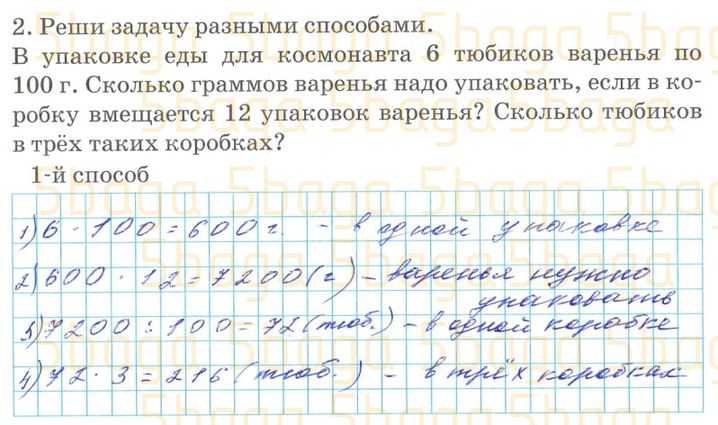 2. Реши задачу разными способами.
В упаковке еды для космонавта 6 тюбиков варенья по
100 г. Сколько граммов варенья надо упаковать, если в ко-
робку вмещается 12 упаковок варенья? Сколько тюбиков
в трёх таких коробках?
1-й способ
1) 6 · 100 = 600 г. - в одной упаковке
2) 600 · 12 = 7200 (г) – варенья нужно
упаковать
3) 7200 : 100 = 72 (тюб.) – в одной коробке
4) 72 · 3 = 216 (тюб.) – в трёх коробках